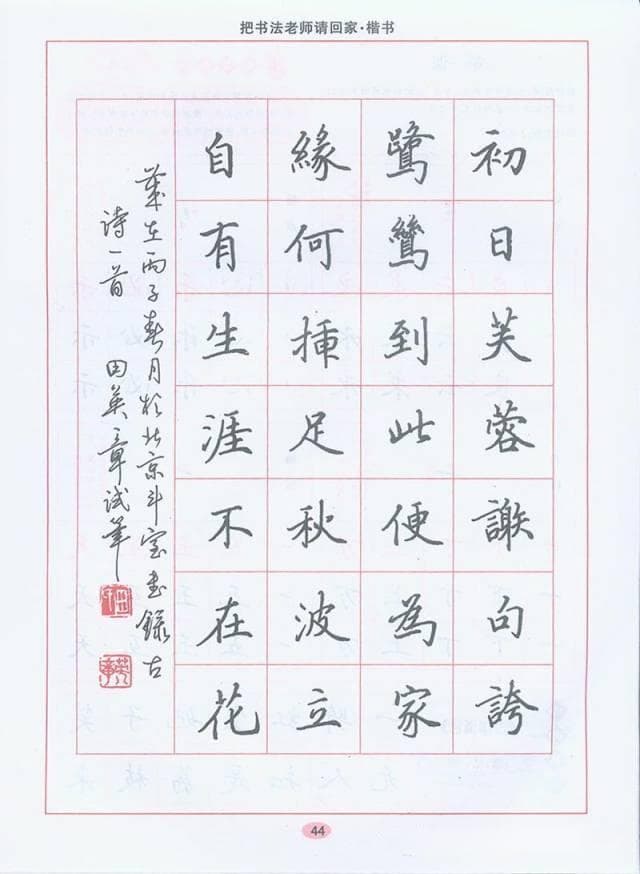 把书法老师请回家·楷书
初日芙蓉謝句誇
鷺鷥到此便為家
緣何插足秋波立
自有生涯不在花
歲在丙子春月於北京斗室書錄古
诗一首 田英章试笔
44